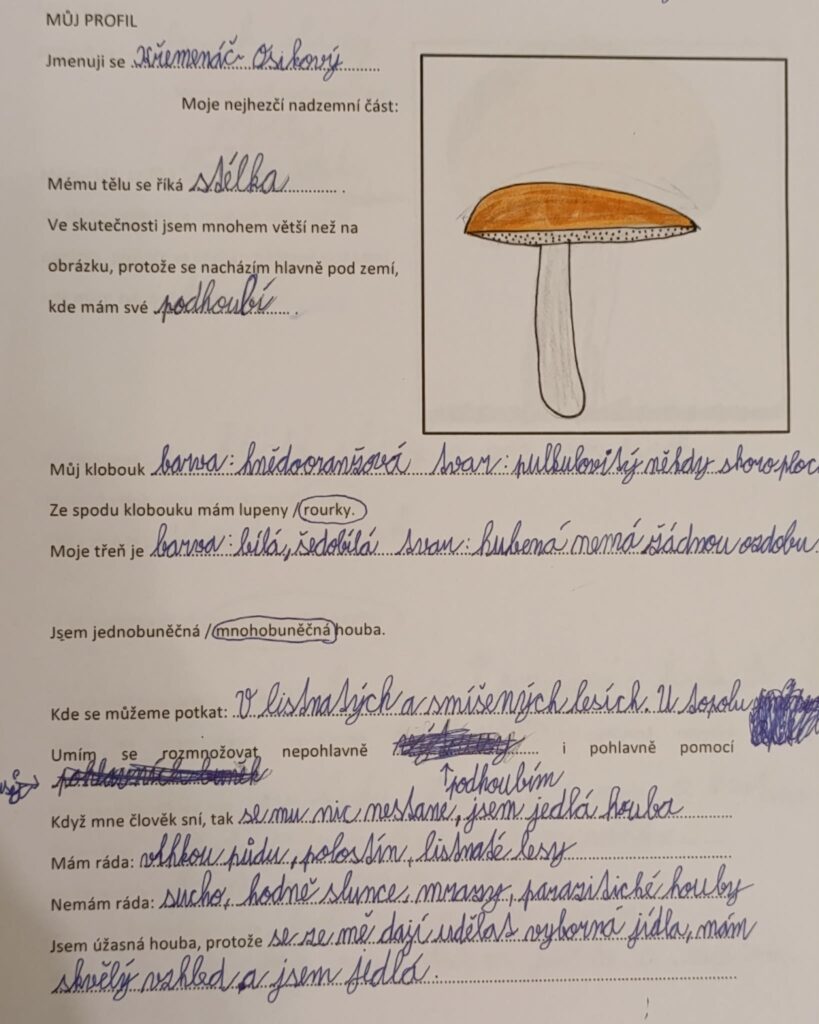 MŮJ PROFIL
Jmenuji se Křemenáč Osikový
Moje nejhezčí nadzemní část:
Mému tělu se říká stélka.
Ve skutečnosti jsem mnohem větší než na
obrázku, protože se nacházím hlavně pod zemí,
kde mám své podhoubí.
Můj klobouk barva: hnědooranžová tvar: pulkulovitý někdy skoro ploc
Ze spodu klobouku mám lupeny / rourky.
Moje třeň je barva: bílá, šedobílá tvar: hubená nemá žádnou ozdobu
Jsem jednobuněčná / mnohobuněčná houba.
Kde se můžeme potkat: V listnatých a smíšených lesích. U topolu
Umím se rozmnožovat nepohlavně i pohlavně pomocí
podhoubím
Když mne člověk sní, tak se mu nic nestane, jsem jedlá houba
Mám ráda: vlhkou půdu, polostín, listnaté lesy
Nemám ráda: sucho, hodně slunce, mrazy, parazitické houby
Jsem úžasná houba, protože se ze mě dají udělat vyborná jídla, mám
skvělý vzhled a jsem jedlá.